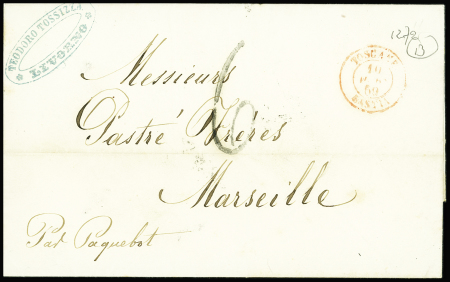 TEODORO TOSSIZZA
LIVORNO
1278
B
TOSCANE
10
60
BASTIA
Messieurs
10
Pastré Frères
Marseille
Par Paquebot